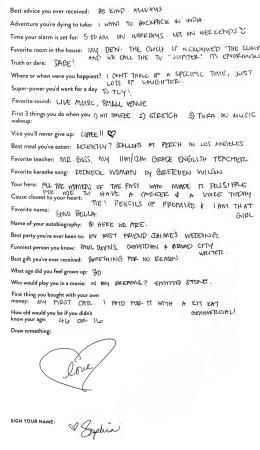 Best advice you ever received: BE KIND. ALWAYS
Adventure you're dying to take: I WANT TO BACKPACK IN INDIA
Time your alarm is set for: 5:00AM ON WEEKDAYS. NOT ON WEEKENDS
Favorite room in the house: MY DEN. THE COUCH IS NICKNAMED "THE CLOUD"
AND WE CALL THE TV "JUPITER". ITS ENORMOUS
Truth or dare: DARE!
Where or when were you happiest? I CAN'T THINK OF A SPECIFIC TIME, JUST
LOTS OF LAUGHTER.
Super-power you'd want for a day? TO FLY!
Favorite sound: LIVE MUSIC, SMALL VENUE
First 3 things you do when you wakeup: 1) HIT SNOOZE 2) STRETCH 3) TURN ON MUSIC
Vice you'll never give up: COFFEE!!
Best meal you've eaten: RECENTLY? SCALLOPS AT PERCH IN LOS ANGELES
Favorite teacher: MR. GUSS, MY 11TH/12TH GRADE ENGLISH TEACHER
Favorite karaoke song: REDNECK WOMAN by GRETCHEN WILSON
Your hero: ALL THE WOMEN OF THE PAST WHO MADE IT POSSIBLE
FOR ME TO HAVE A CAREER & A VOICE TODAY.
Cause closest to your heart: TIE! PENCILS OF PROMISE & I AM THAT
GIRL
Favorite name: BELLA
Name of your autobiography: & HERE WE ARE.
Best party you've ever been to: MY BEST FRIEND JAIME'S WEDDING.
Funniest person you know: PAUL DOWNS, COMEDIAN & BROAD CITY
WRITER.
Best gift you've ever received: SOMETHING FOR NO REASON
What age did you feel grown up: 30
Who would play you in a movie: IN MY DREAMS? EMMA STONE.
First thing you bought with your own
money: MY FIRST CAR. I PAID FOR IT WITH A KIT KAT
COMMERCIAL!
How old would you be if you didn't
know your age: 46 OR 16
Draw something:
love
SIGN YOUR NAME: Sophia